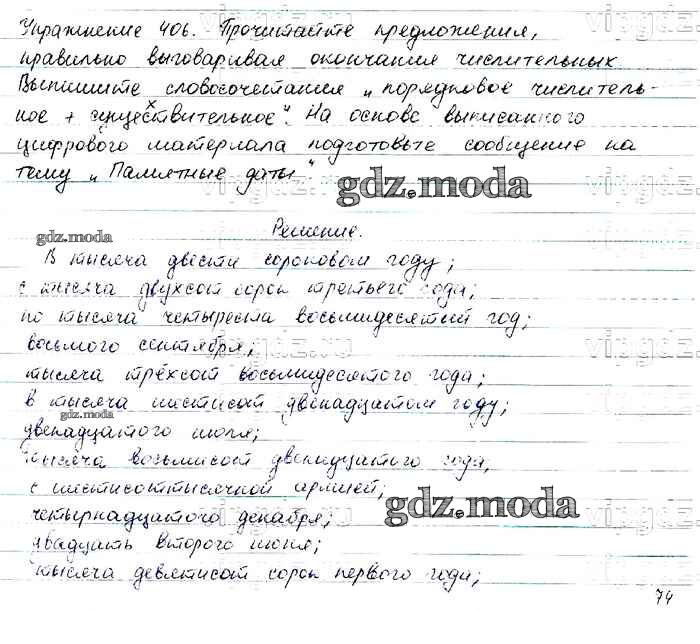 Упражнение 406. Прочитайте предложения,
правильно выговаривая окончания числительных
Выпишите словосочетания „порядковое числитель-
ное + существительное". На основе выписанного
цифрового материала подготовьте сообщение на
тему „Памятные даты"
gdz.moda
Решение.
gdz.moda
В тысяча двести сороковом году;
с тысяча двухсот сорок третьего года;
по тысяча четыреста восьмидесятый год;
восьмого сентября;
тысяча трёхсот восьмидесятого года;
в тысяча шестисот двенадцатом году;
gdz.moda
двенадцатого июля;
тысяча восьмисот двенадцатого года,
с шестисоттысячной армией;
gdz.moda
четырнадцатого декабря;
двадцать второго июня;
тысяча девятисот сорок первого года;
74